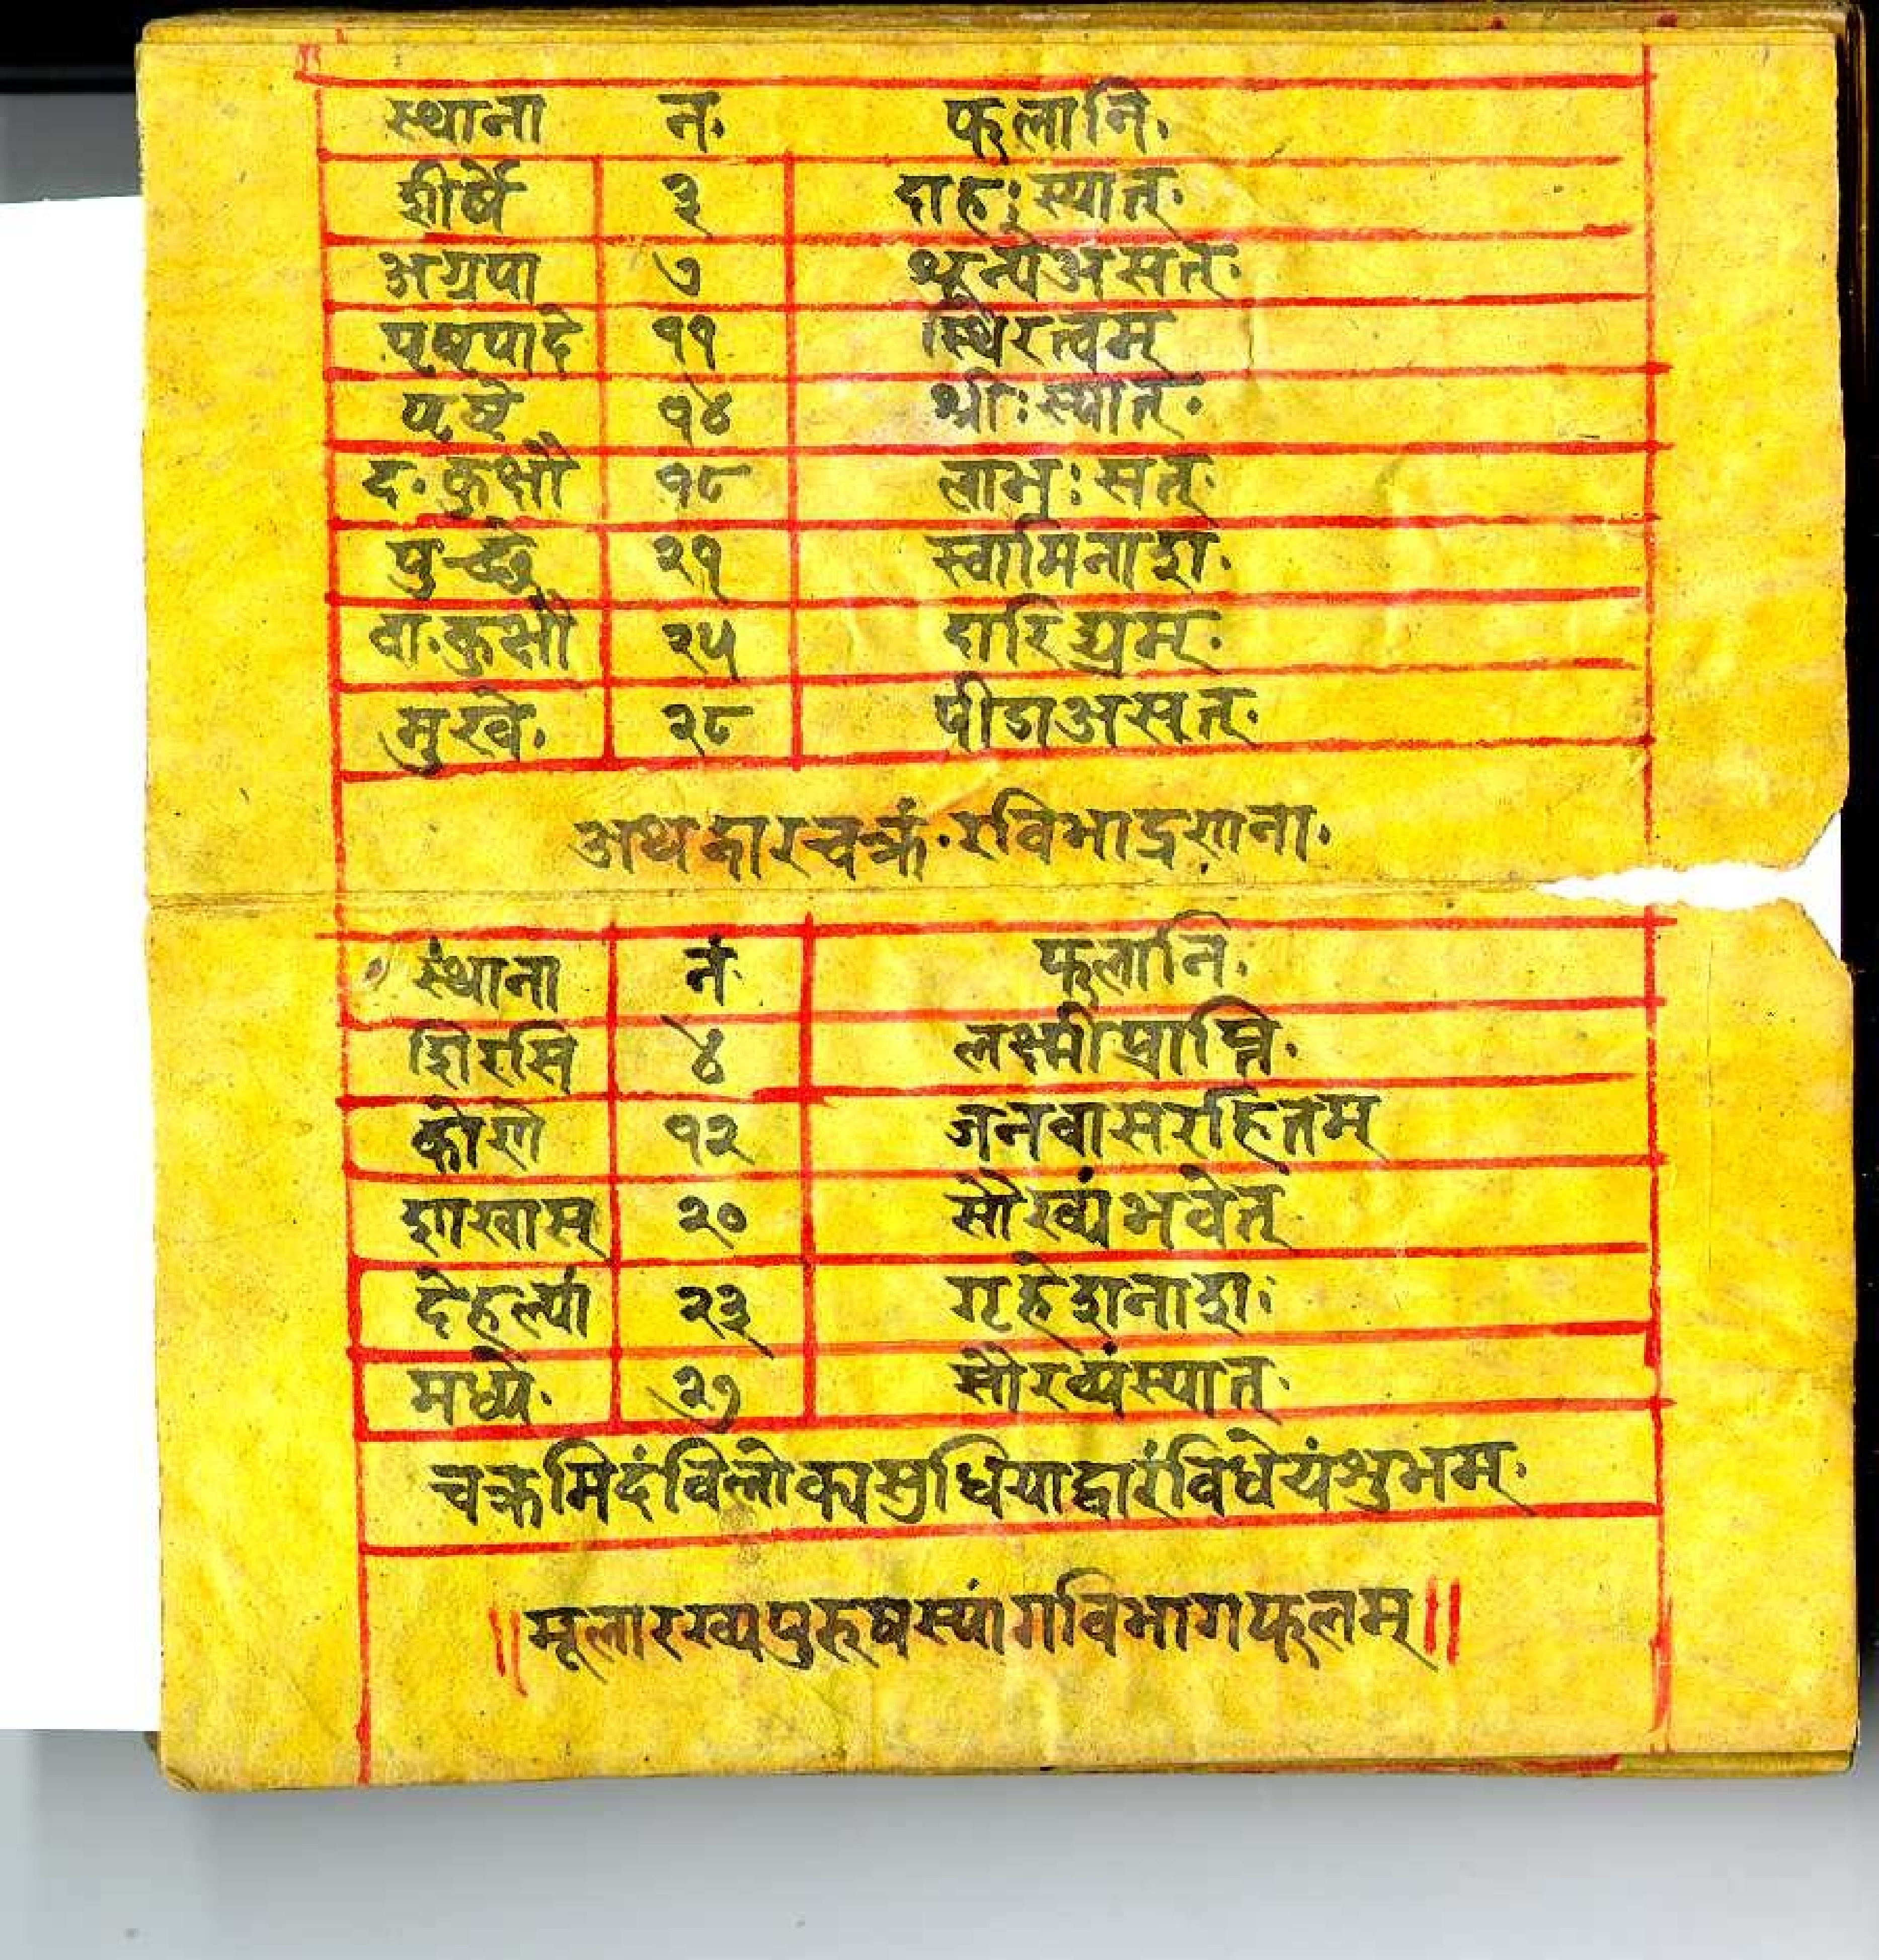 स्थाना न. फलानि.
शीर्षे ३ दाहःस्यात्.
अग्रपा ७ शून्यंअसत्.
पृष्ठपादे ११ स्थिरत्वम्
पृष्ठे १४ श्रीःस्यात्.
द. कुक्षौ १८ लाभःसत्.
पुच्छे २१ स्वामिनाश.
वा.कुक्षौ २५ दारिद्रम्.
मुखे. २८ पीडाअसत्.
अथद्वारचक्रं.रविभाद्रगाना.
स्थाना नं फलानि.
शिरसि ४ लक्ष्मीप्राप्ति.
कोणे १२ जनवासरहितम्
शाखास् २० सौख्यंभवेत्
देहल्यां २३ गृहेशनाशः
मध्ये. २७ सौख्यंस्यात्.
चक्रमिदंविलोक्यसुधियाद्वारंविधेयंशुभम्.
॥मूलाख्यपुरुषस्यांगविभागफलम्॥